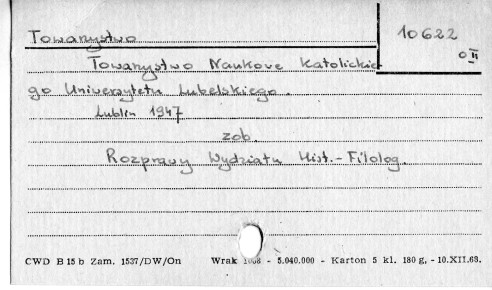 Towarzystwo
10622
0 II
Towarzystwo Naukowe Katolickie
go Uniwersytetu Lubelskiego.
Lublin 1947
zob.
Rozprawy Wydziału Hist.-Filolog.
CWD B 15 b Zam. 1537/DW/On Wrak - 5.040.000 - Karton 5 kl. 180 g, - 10.XII.68.